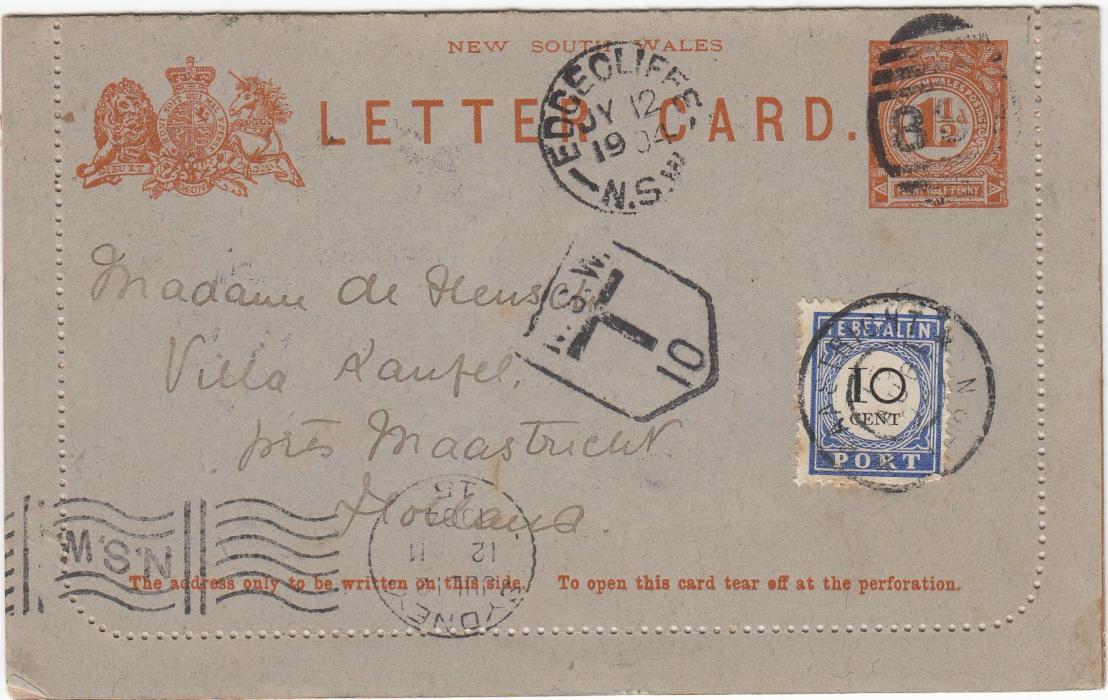 NEW SOUTH WALES
LETTER CARD.
DIEU ET MON DROIT
1½d
PENNY HALF-PENNY
EDGECLIFFE
JY 12
1904
N.S.W
N.S.W.
T
10
Madame de
Villa
près Maastricht
Holland.
TE BETALEN
10
CENT
PORT
MAASTRICHT
N.S.W.
SYDNEY
12
15
The address only to be written on this side. To open this card tear off at the perforation.